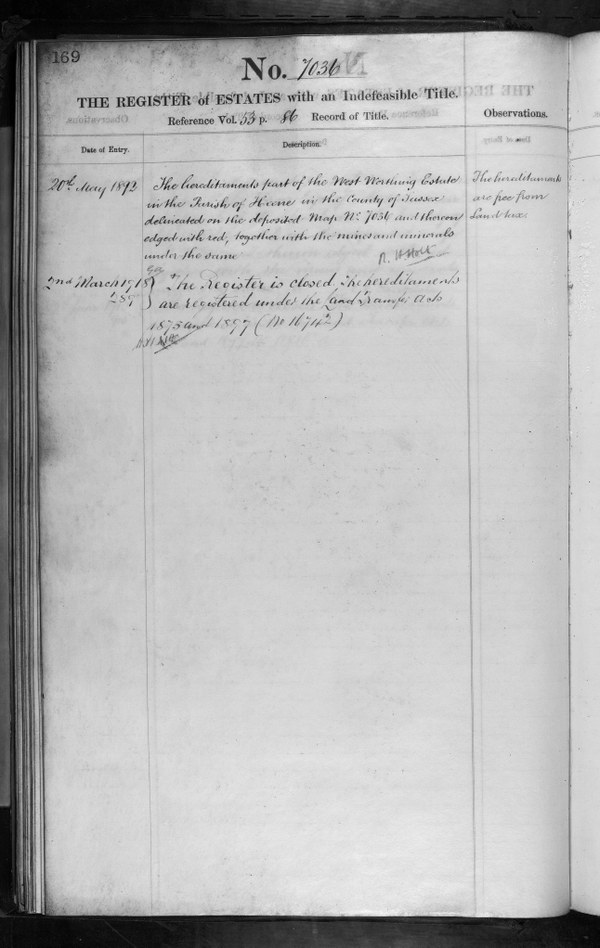 169
No. 7036
THE REGISTER of ESTATES with an Indefeasible Title.
Reference Vol. 53 p. 86 Record of Title.
Observations.
Date of Entry.
Description.
20th May 1892
The hereditaments part of the West Worthing Estate
in the Parish of Heene in the County of Sussex
delineated on the deposited Map No. 7036 and thereon
edged with red, together with the mines and minerals
under the same
R. H. Holt
The hereditaments
are free from
Land tax
2nd March 1918
The Register is closed. The hereditaments
are registered under the Land Transfer Acts
1875 and 1897 (No 16742)